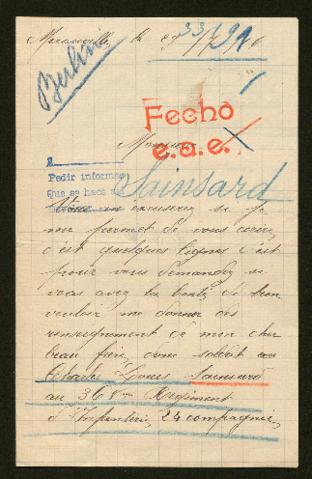 Berlin
Fecho
e.a.e.
Monsieur
Pedir informes
que se hace
Sainsard
Vous m'excuserez si je
me permet de vous écrire,
c'est quelques lignes c'est
pour vous demandez si
vous avez la bonté de bien
vouloir me donner des
renseignement de mon cher
beau frère, soldat
Charles Louis Sainsard
au 368me Régiment
d'Infanterie, 24 compagnie,